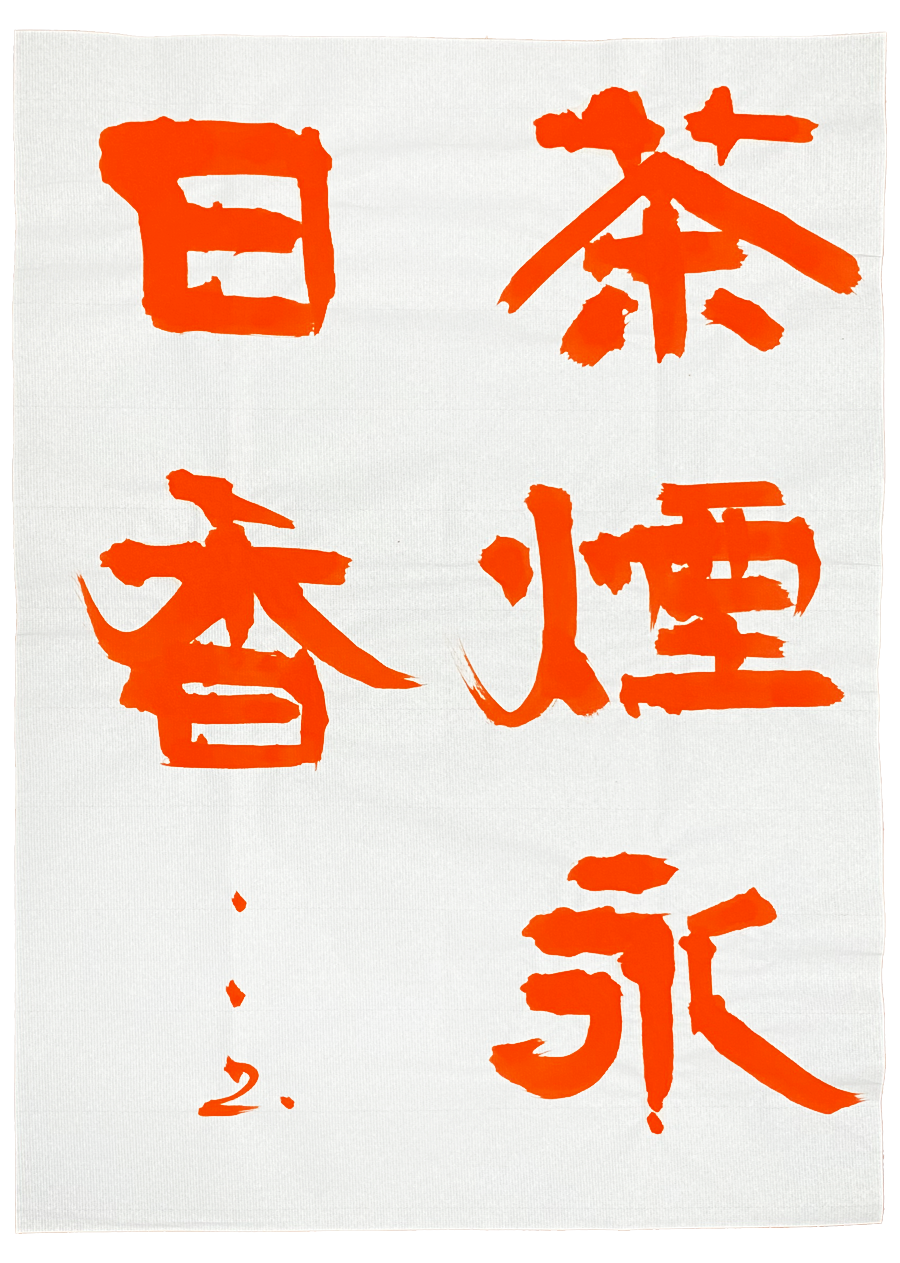 茶煙永
日香
2.